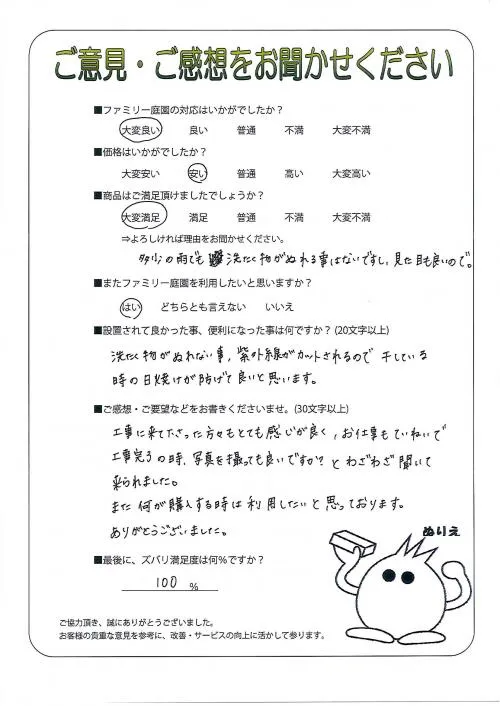 ご意見・ご感想をお聞かせください
■ファミリー庭園の対応はいかがでしたか?
大変良い 良い 普通 不満 大変不満
■価格はいかがでしたか?
大変安い 安い 普通 高い 大変高い
■商品はご満足頂けましたでしょうか?
大変満足 満足 普通 不満 大変不満
⇒よろしければ理由をお聞かせください。
多少の雨でも洗たく物がぬれる事はないですし、見た目も良いので。
■またファミリー庭園を利用したいと思いますか?
はい どちらとも言えない いいえ
■設置されて良かった事、便利になった事は何ですか? (20文字以上)
洗たく物がぬれない事、紫外線がカットされるので干している
時の日焼けが防げて良いと思います。
■ご感想・ご要望などをお書きくださいませ。(30文字以上)
工事に来て下さった方々もとても感じが良く、お仕事もていねいで
工事完了の時、写真を撮っても良いですか?とわざわざ聞いて
来られました。
また何か購入する時は利用したいと思っております。
ありがとうございました。
ぬりえ
■最後に、ズバリ満足度は何%ですか?
100 %
ご協力頂き、誠にありがとうございました。
お客様の貴重な意見を参考に、改善・サービスの向上に活かして参ります。